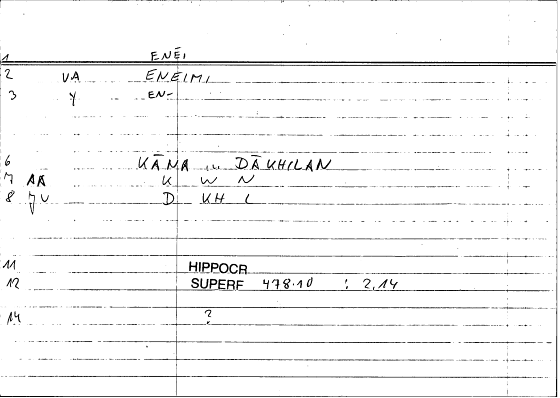 1 ENEI
2 VA ENEIMI
3 Y EN-
6 KĀNA ... DĀKHILAN
7 AA K W N
8 JV D KH L
11 HIPPOCR
12 SUPERF 478.10 : 2.14
14 ?